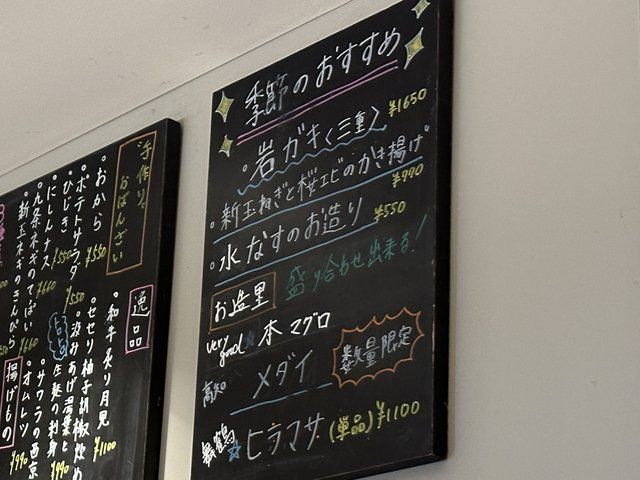 季節のおすすめ
。岩ガキ〈三重〉 ¥1650
。新玉ねぎと桜エビのかき揚げ ¥770
。水なすのお造り ¥550
お造里 盛り合わせ出来る!
very good 本マグロ
高知 メダイ 数量限定
舞鶴 ヒラマサ (単品) ¥1100
手作り。おばんざい
・おから ¥550
・ポテトサラダ ¥550
・ひじき ¥550
・にしんナス ¥660
・九条ネギのてっぱい ¥660
・新玉ネギのきんぴら
逸品
・和牛炙り月見 ¥1100
・セセリ柚子胡椒炒め
・汲みあげ湯葉と
生麩の刺身 ¥990
・サワラの西京
・オムレツ ¥990
揚げもの